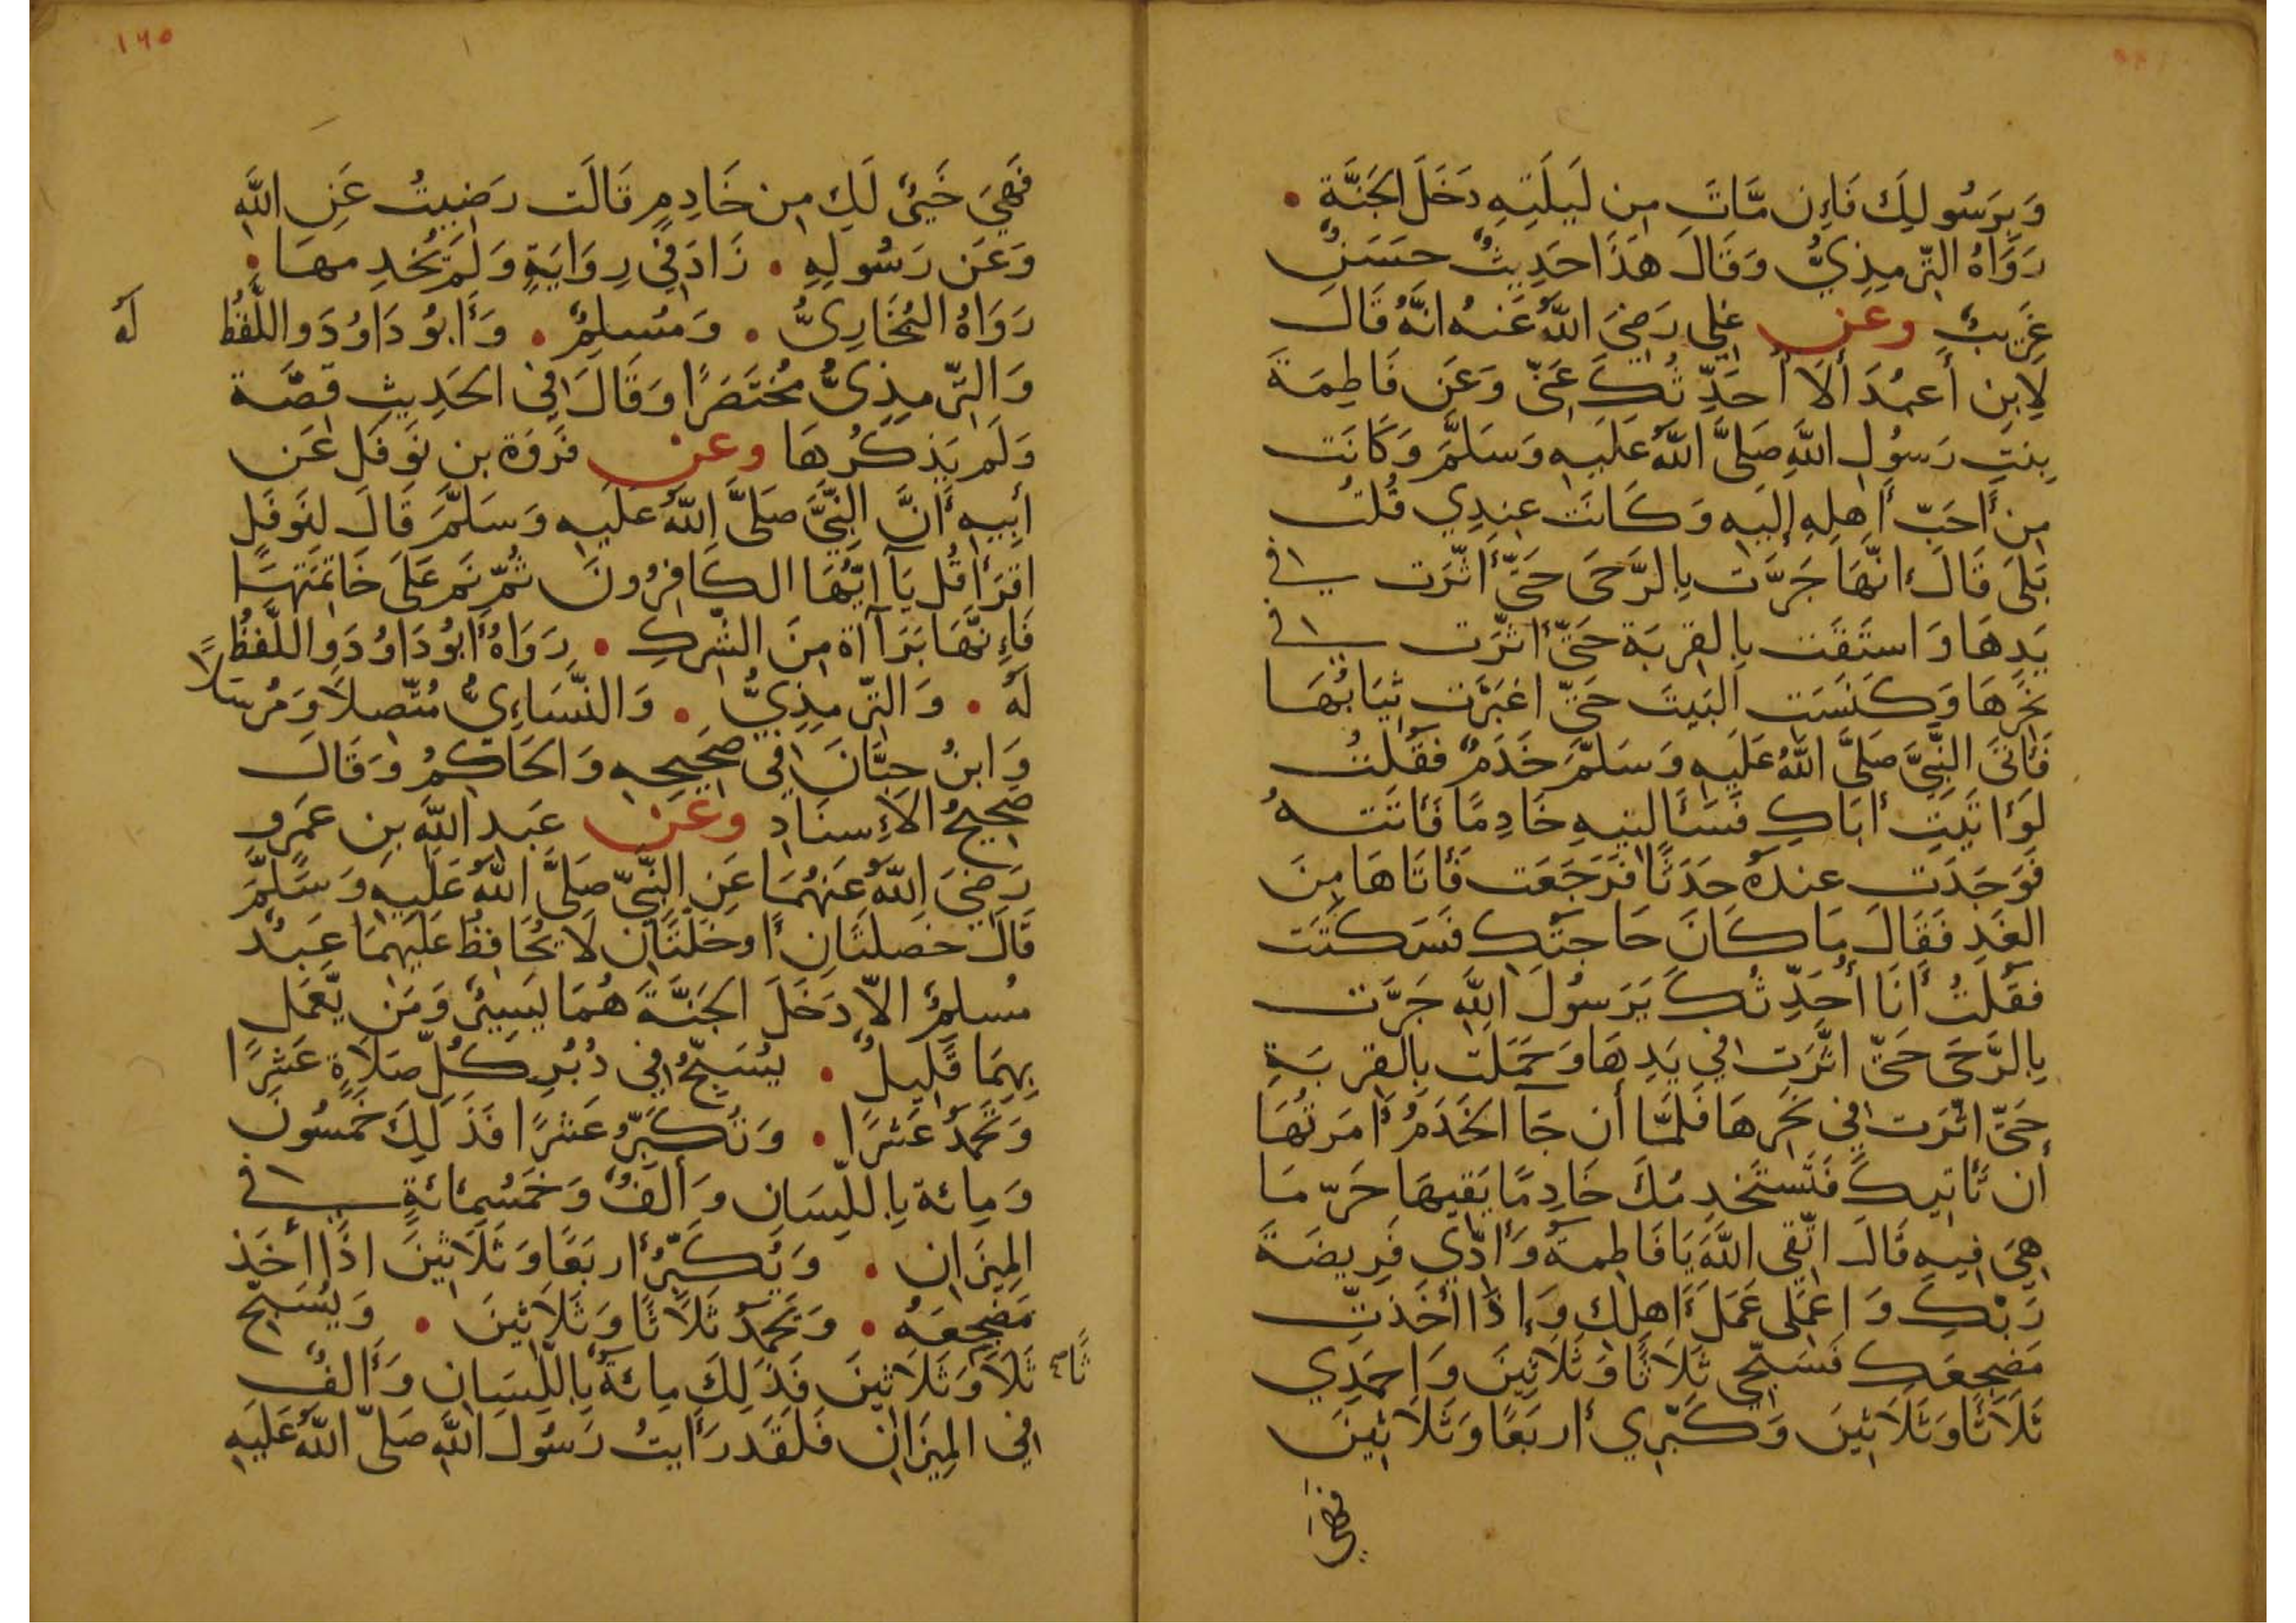 وَبِرَسُولِكَ فَإِن مَّاتَ مِن لَيلَتِهِ دَخَلَ الجَنَّةَ •
رَوَاهُ التِّرمِذِيُّ وَقَالَ هَذَا حَدِيثٌ حَسَنٌ
غَرِيبٌ وعن عَلِي رَضِيَ اللَّهُ عَنهُ انَّهُ قَالَ
لِابنِ أَعبُدَ أَلَا أُحَدِّثُكَ عَنِّي وَعَن فَاطِمَةَ
بِنتِ رَسُولِ اللَّهِ صَلَّى اللَّهُ عَلَيهِ وَسَلَّمَ وَكَانَت
مِن أَحَبِّ أَهلِهِ إِلَيهِ وَكَانَت عِندِي قُلتُ
بَلَى قَالَ انَّهَا جَرَّت بِالرَّحَى حَتَّى أَثَّرَت فِي
يَدِهَا وَاستَقَت بِالقِربَةِ حَتَّى أَثَّرَت فِي
نَحرِهَا وَكَنَسَتِ البَيتَ حَتَّى اغبَرَّت ثِيَابُهَا
فَأَتَى النَّبِيَّ صَلَّى اللَّهُ عَلَيهِ وَسَلَّمَ خَدَمٌ فَقُلتُ
لَو أَتَيتِ أَبَاكِ فَسَأَلتِيهِ خَادِمًا فَأَتَتهُ
فَوَجَدَت عِندَهُ حَدَثًا فَرَجَعَت فَأَتَاهَا مِنَ
الغَدِ فَقَالَ مَا كَانَ حَاجَتُكِ فَسَكَتَت
فَقُلتُ أَنَا أُحَدِّثُكَ يَرَسُولَ اللَّهِ جَرَّت
بِالرَّحَى حَتَّى اثَّرَت فِي يَدِهَا وَحَمَلَت بِالقِربَةِ
حَتَّى اثَّرَت فِي نَحرِهَا فَلَمَّا أَن جَآ الخَدَمُ أَمَرتُهَا
أَن تَأتِيكَ فَتَستَخدِمُكَ خَادِمًا يَقِيهَا حَرَّ مَا
هِيَ فِيهِ قَالَ اتَّقِي اللَّهَ يَا فَاطِمَةُ وَأَدِّي فَرِيضَةَ
رَبِّكِ وَاعمَلِي عَمَلَ أَهلِكِ وَإِذَا أَخَذتِ
مَضجَعَكِ فَسَبِّحِي ثَلَاثًا وَثَلَاثِينَ وَاحمَدِي
ثَلَاثًا وَثَلَاثِينَ وَكَبِّرِي أَربَعًا وَثَلَاثِينَ
فَهِيَ
١٦٥
فَهِيَ خَيرٌ لَكِ مِن خَادِمٍ قَالَت رَضِيتُ عَنِ اللَّهِ
وَعَن رَسُولِهِ • زَادَ فِي رِوَايَةٍ وَلَم يُخدِمهَا •
رَوَاهُ البُخَارِيُّ • وَمُسلِمٌ • وَأَبُو دَاوُدَ وَاللَّفظُ
لَهُ
وَالتِّرمِذِيُّ مُختَصَرًا وَقَالَ فِي الحَدِيثِ قِصَّة
وَلَم يَذكُرهَا وعن فَروَةَ بنِ نَوفَلٍ عَن
أَبِيهِ أَنَّ النَّبِيَّ صَلَّى اللَّهُ عَلَيهِ وَسَلَّمَ قَالَ لِنَوفَلٍ
اقرَأ قُل يَآ أَيُّهَا الكَافِرُونَ ثُمَّ نَم عَلَى خَاتِمَتِهَا
فَإِنَّهَا بَرَآأَة مِنَ الشِّركِ • رَوَاهُ أَبُو دَاوُدَ وَاللَّفظُ
لَهُ • وَالتِّرمِذِيُّ • وَالنَّسَاءِيُّ مُتَّصِلًا وَمُرسَلًا
وَابنُ حِبَّانَ فِي صَحِيحِهِ وَالحَاكِمُ وَقَالَ
صَحِيحُ الإِسنَادِ وعن عَبدِ اللَّهِ بنِ عَمرٍو
رَضِيَ اللَّهُ عَنهُمَا عَنِ النَّبِيِّ صَلَّى اللَّهُ عَلَيهِ وَسَلَّمَ
قَالَ خَصلَتَانِ أَو خَلَّتَانِ لَا يُحَافِظُ عَلَيهِمَا عَبدٌ
مُسلِمٌ الَّا دَخَلَ الجَنَّةَ هُمَا يَسِيرٌ وَمَن يَّعمَل
بِهِمَا قَلِيلٌ • يُسَبِّحُ فِي دُبُرِ كُلِّ صَلَاةٍ عَشرًا
وَتَحمَدُ عَشرًا • وَتُكَبِّرُ عَشرًا فَذَلِكَ خَمسُونَ
وَمِائَة بِاللِّسَانِ وَأَلفٌ وَخَمسُمِائَةٍ فِي
المِيزَانِ • وَيُكَبِّرُ أَربَعًا وَثَلَاثِينَ اذَا أَخَذَ
مَضجَعَهُ • وَتَحمَدُ ثَلَاثًا وَثَلَاثِينَ • وَيُسَبِّحُ
ثًا صح
ثَلَا وَثَلَاثِينَ فَذَلِكَ مِائَةٌ بِاللِّسَانِ وَأَلفٌ
فِي المِيزَانِ فَلَقَد رَأَيتُ رَسُولَ اللَّهِ صَلَّى اللَّهُ عَلَيهِ